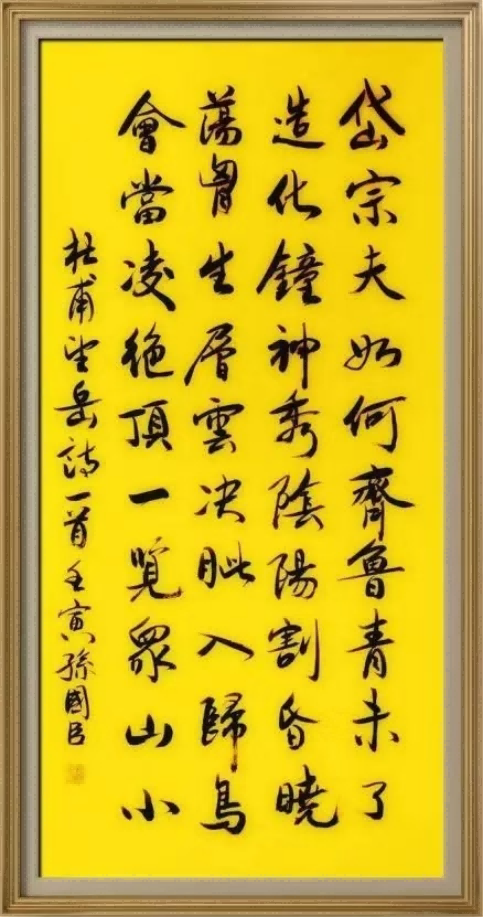 岱宗夫如何齊魯青未了
造化鐘神秀陰陽割昏曉
蕩胷生層雲決眦入歸鳥
會當凌絶頂一覽衆山小
杜甫望岳詩一首壬寅孫國臣